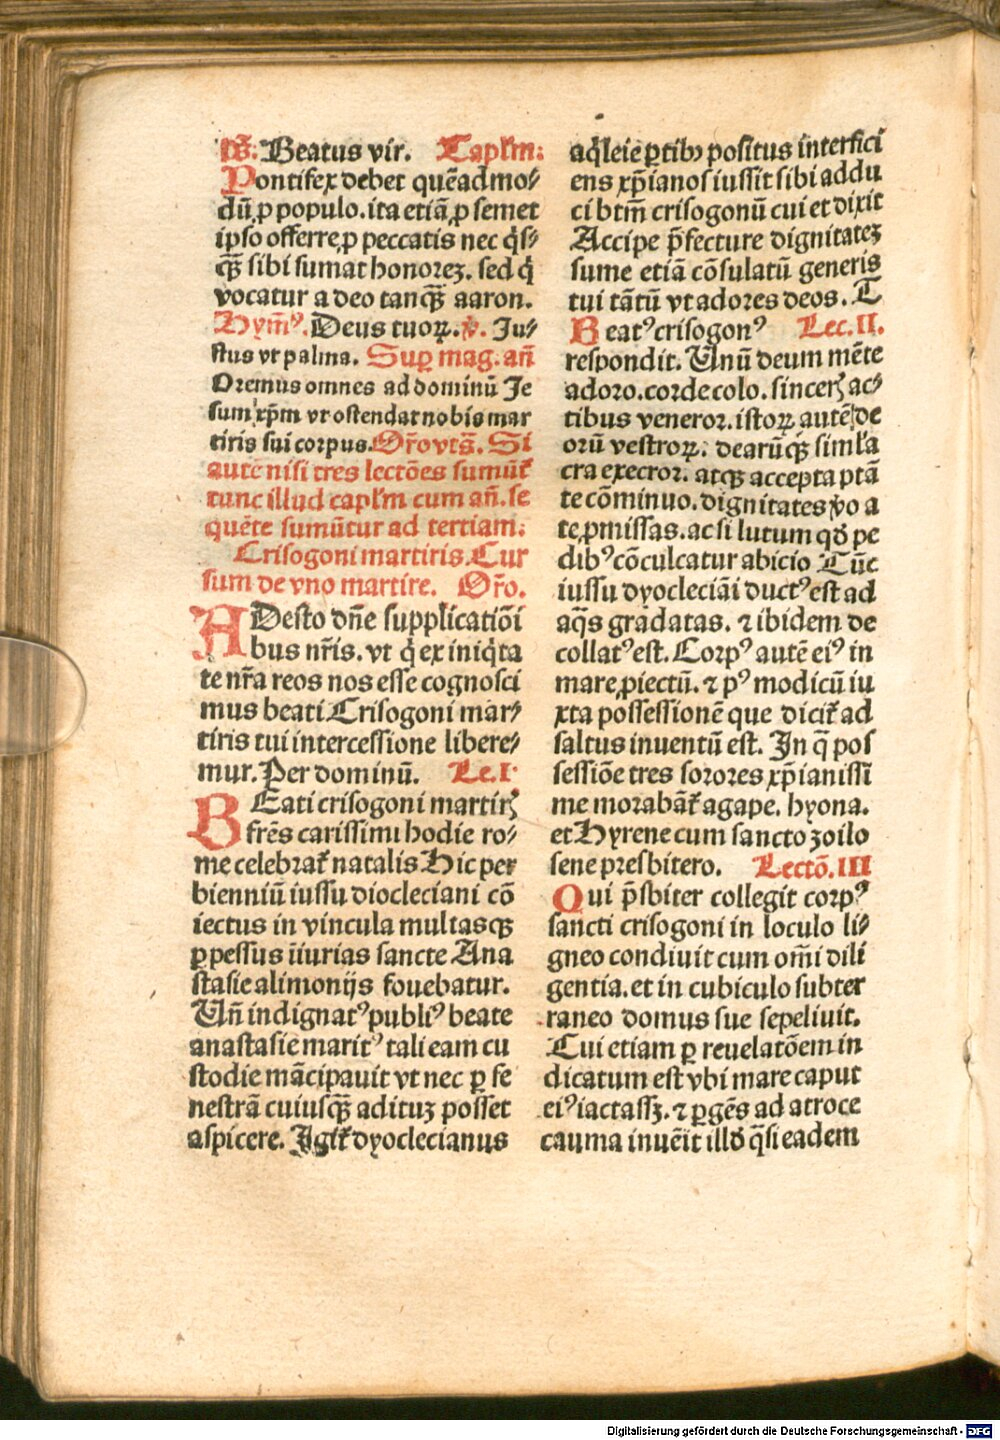 ps̄. Beatus vir. Capl'm:
Pontifex debet quēadmo⸗
dū ꝓ populo. ita etiā ꝓ semet
ipso offerre ꝓ peccatis nec q̇s⸗
q̄ꝫ sibi sumat honoreꝫ. sed q̇
vocatur a deo tanq̄ꝫ aaron.
Hym̄ꝰ. Deus tuoꝝ. v̄. Ju⸗
stus vt palma. Suꝑ mag. an̄
Oremus omnes ad dominū Je
sum xp̄m vt ostendat nobis mar
tiris sui corpus. Or̄o vt s̄. Si
autē nisi tres lectōes sumūt᷑
tunc illud capl'm cum an̄. se
quēte sumūtur ad tertiam.
Crisogoni martiris. Cur
sum de vno martire. Or̄o.
ADesto dn̄e supplicatiōi
bus nr̄is. vt q̇ ex iniq̇ta
te nr̄a reos nos esse cognosci
mus beati Crisogoni mar⸗
tiris tui intercessione libere⸗
mur. Per dominū. Le. I.
BEati crisogoni martirꝭ
frēs carissimi hodie ro⸗
me celebrat᷑ natalis Hic per
bienniū iussu diocleciani cō
iectus in vincula multasqꝫ
ꝑpessus īiurias sancte Ana
stasie alimonijs fouebatur.
Un̄ indignatꝰ publiꝰ beate
anastasie maritꝰ tali eam cu
stodie mācipauit vt nec ꝑ fe
nestrā cuiusq̄ꝫ adituꝫ posset
aspicere. Igit᷑ dyoclecianus
aq̇leie ꝑtibꝫ positus interfici
ens xp̄ianos iussit sibi addu
ci btm̄ crisogonū cui et dixit
Accipe p̄fecture dignitateꝫ
sume etiā cōsulatū generis
tui tātū vt adores deos. T
Beatꝰ crisogonꝰ Lec. II.
respondit. Unū deum mēte
adoro. corde colo. sincerꝭ ac⸗
tibus veneror. istoꝝ autē de
orū vestroꝝ. dearūqꝫ siml'a
cra execror. atqꝫ accepta ptā
te cōminuo. dignitates ꝟo a
te ꝓmissas. ac si lutum qd̄ pe
dibꝰ cōculcatur abicio Tūc
iussu dyocleciāi ductꝰ est ad
aq̄s gradatas. ⁊ ibidem de
collatꝰ est. Corpꝰ autē eiꝰ in
mare ꝓiectū. ⁊ pꝰ modicū iu
xta possessionē que dicit᷑ ad
saltus inuentū est. In q̄ pos
sessiōe tres sorores xp̄ianissi
me morabāt᷑ agape. hyona.
et Hyrene cum sancto zoilo
sene presbitero. Lectō. III
Qui p̄sbiter collegit corpꝰ
sancti crisogoni in loculo li⸗
gneo condiuit cum om̄i dili
gentia. et in cubiculo subter
raneo domus sue sepeliuit.
Cui etiam ꝑ reuelatōem in
dicatum est vbi mare caput
eiꝰ iactassꝫ. ⁊ ꝑgēs ad atroce
cauma inuēit illd̄ q̄si eadem
Digitalisierung gefördert durch die Deutsche Forschungsgemeinschaft - DFG